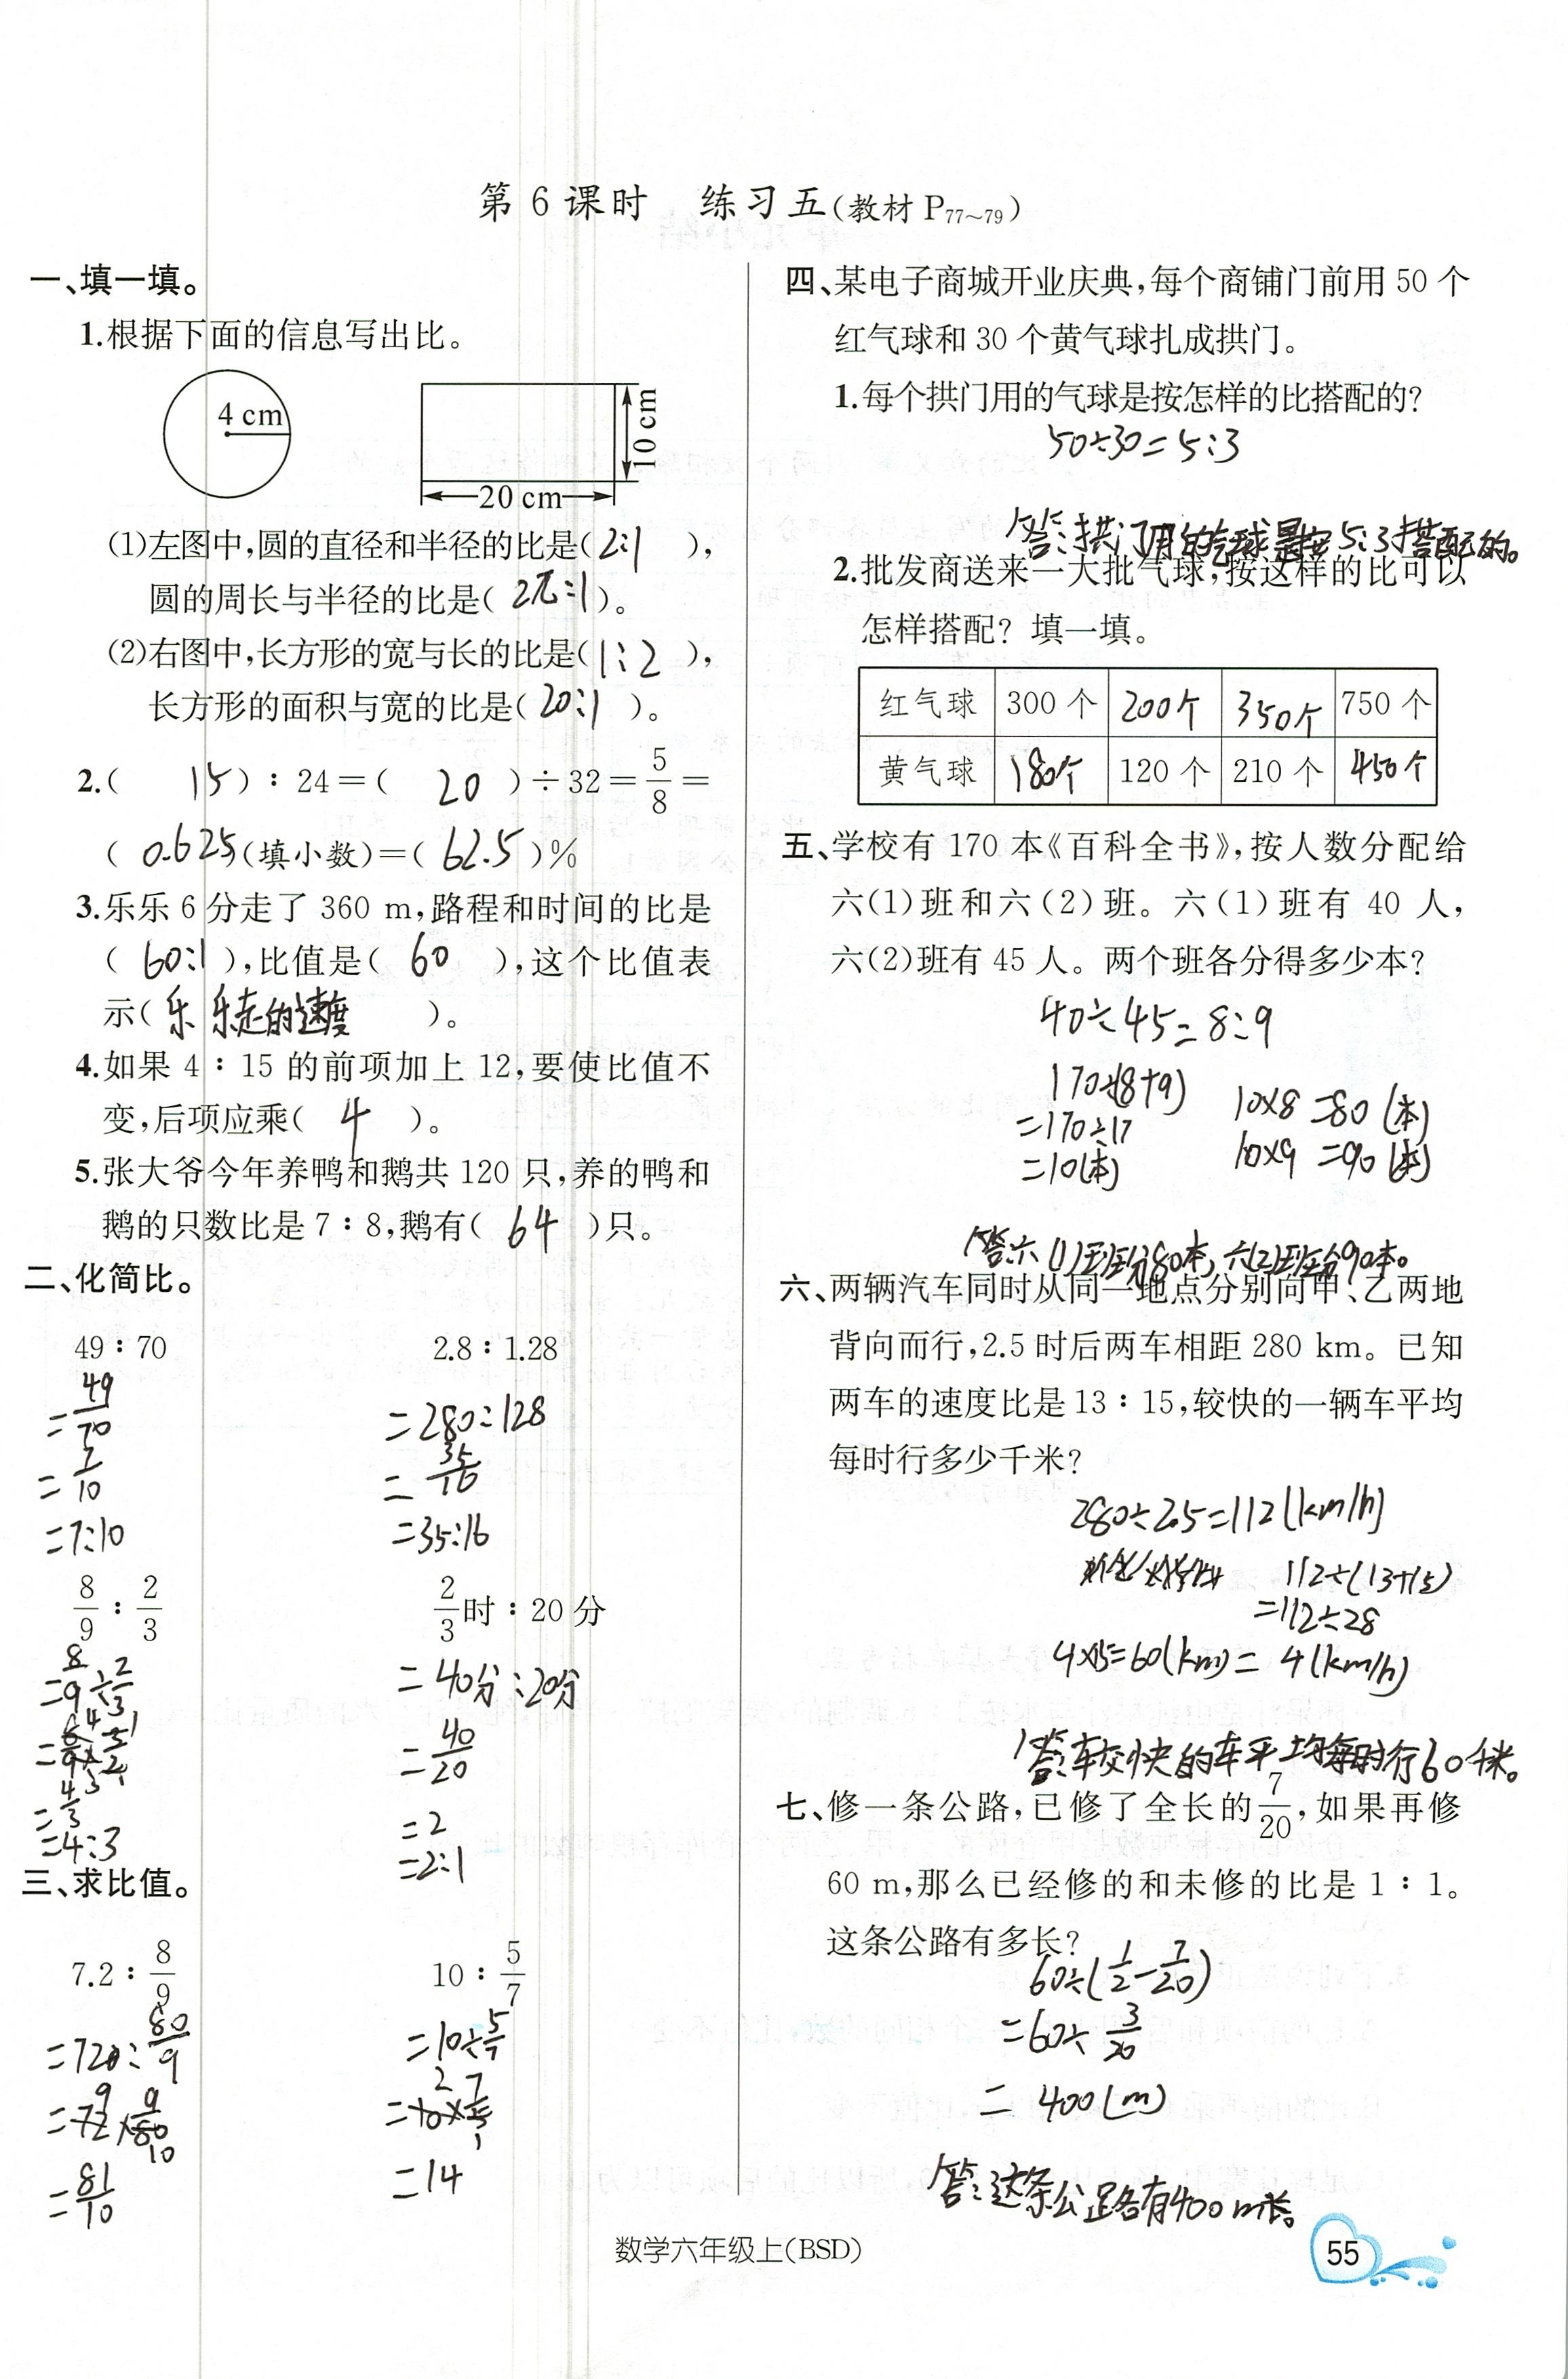 第6课时 练习五(教材P77~79)
一、填一填。
1.根据下面的信息写出比。
4 cm
10 cm
20 cm
(1)左图中,圆的直径和半径的比是(2:1),
圆的周长与半径的比是(2π:1)。
(2)右图中,长方形的宽与长的比是(1:2),
长方形的面积与宽的比是(20:1)。
2.(15):24=(20)÷32=5/8=
(0.625)(填小数)=(62.5)%
3.乐乐6分走了360 m,路程和时间的比是
(60:1),比值是(60),这个比值表
示(乐乐走的速度)。
4.如果4:15的前项加上12,要使比值不
变,后项应乘(4)。
5.张大爷今年养鸭和鹅共120只,养的鸭和
鹅的只数比是7:8,鹅有(64)只。
二、化简比。
49:70
=49/70
=7/10
=7:10
2.8:1.28
=280:128
=35/16
=35:16
8/9:2/3
=8/9÷2/3
=4/3
=4:3
2/3时:20分
=40分:20分
=40/20
=2
=2:1
三、求比值。
7.2:8/9
=72:80/9
=72×9/80
=81/10
10:5/7
=10÷5/7
=10×7/5
=14
四、某电子商城开业庆典,每个商铺门前用50个
红气球和30个黄气球扎成拱门。
1.每个拱门用的气球是按怎样的比搭配的?
50÷30=5:3
答:拱门用的气球是按5:3搭配的。
2.批发商送来一大批气球,按这样的比可以
怎样搭配? 填一填。
红气球 300个 200个 350个 750个
黄气球 180个 120个 210个 450个
五、学校有170本《百科全书》,按人数分配给
六(1)班和六(2)班。六(1)班有40人,
六(2)班有45人。两个班各分得多少本?
40÷45=8:9
170÷(8+9)
=170÷17
=10(本)
10×8=80(本)
10×9=90(本)
答:六(1)班分80本,六(2)班分90本。
六、两辆汽车同时从同一地点分别向甲、乙两地
背向而行,2.5时后两车相距280 km。已知
两车的速度比是13:15,较快的一辆车平均
每时行多少千米?
280÷2.5=112(km/h)
112÷(13+15)
=112÷28
=4(km/h)
4×15=60(km)
答:较快的车平均每时行60千米。
七、修一条公路,已修了全长的7/20,如果再修
60 m,那么已经修的和未修的比是1:1。
这条公路有多长?
60÷(1/2-7/20)
=60÷3/20
=400(m)
答:这条公路有400m长。
数学六年级上(BSD)
55